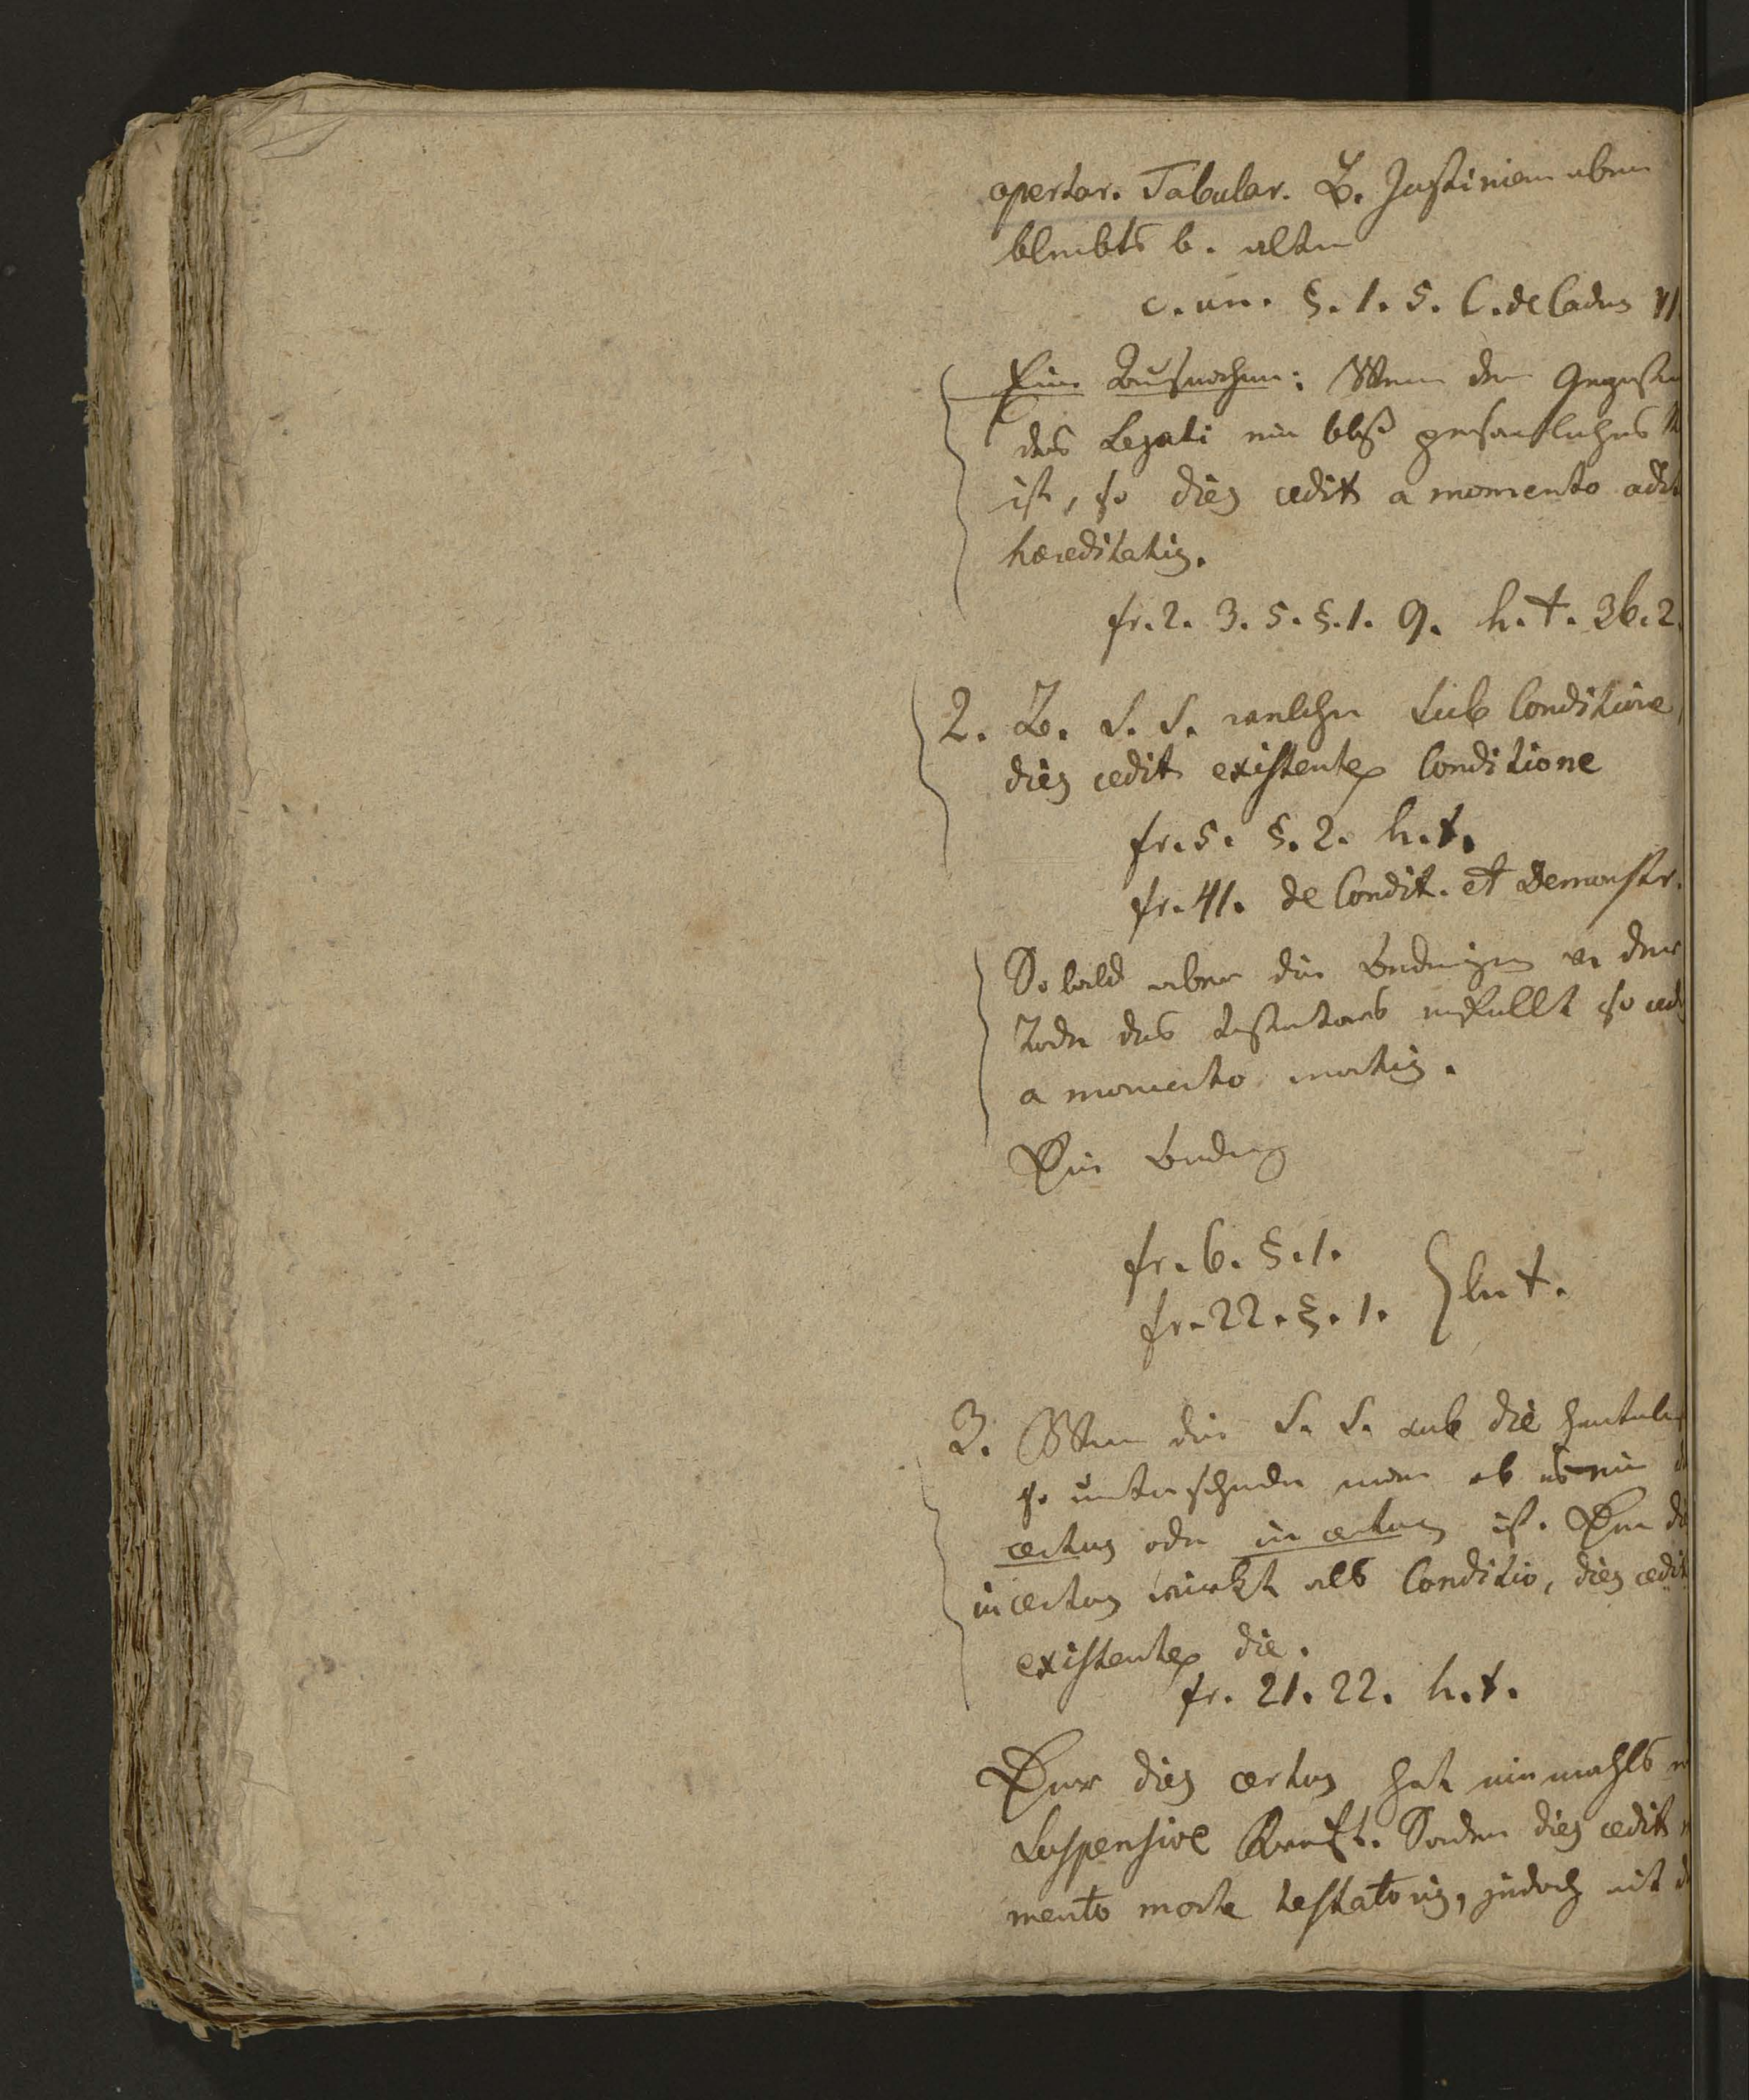 apertar. Tabular. B. Justinian aber
bleibts b. alten
c. un. §. 1. 5. C. de Caduc
Eine Ausnahme: Wenn der Gegenstan
des Legati ein blos persoenliches
ist, so dies cedit a momento adit
haereditatis.
fr. 2. 3. 5. §. 1. 9. h. t. 36. 2.
2. B. L. L. welche sub Conditione,
dies cedit existente Conditione
fr. 5. §. 2. h. t.
fr. 41. de Condit. et Demonstr.
So bald aber die Bedingung v. dem
Tode des Testators erfüllt so ced
a momento mortis.
Die Beding
fr. 6. §. 1.
fr. 22. §. 1. } h. t.
3. Wenn die L. L. sub die
so unterscheide man ob es ein
certus oder incertus ist. Ein di
incertus wirkt als Conditio, dies cedit
existente die.
fr. 21. 22. h. t.
Der dies certus hat niemahls
suspensive Kraft. Sondern dies cedit
mento morte testatoris, jedoch mit